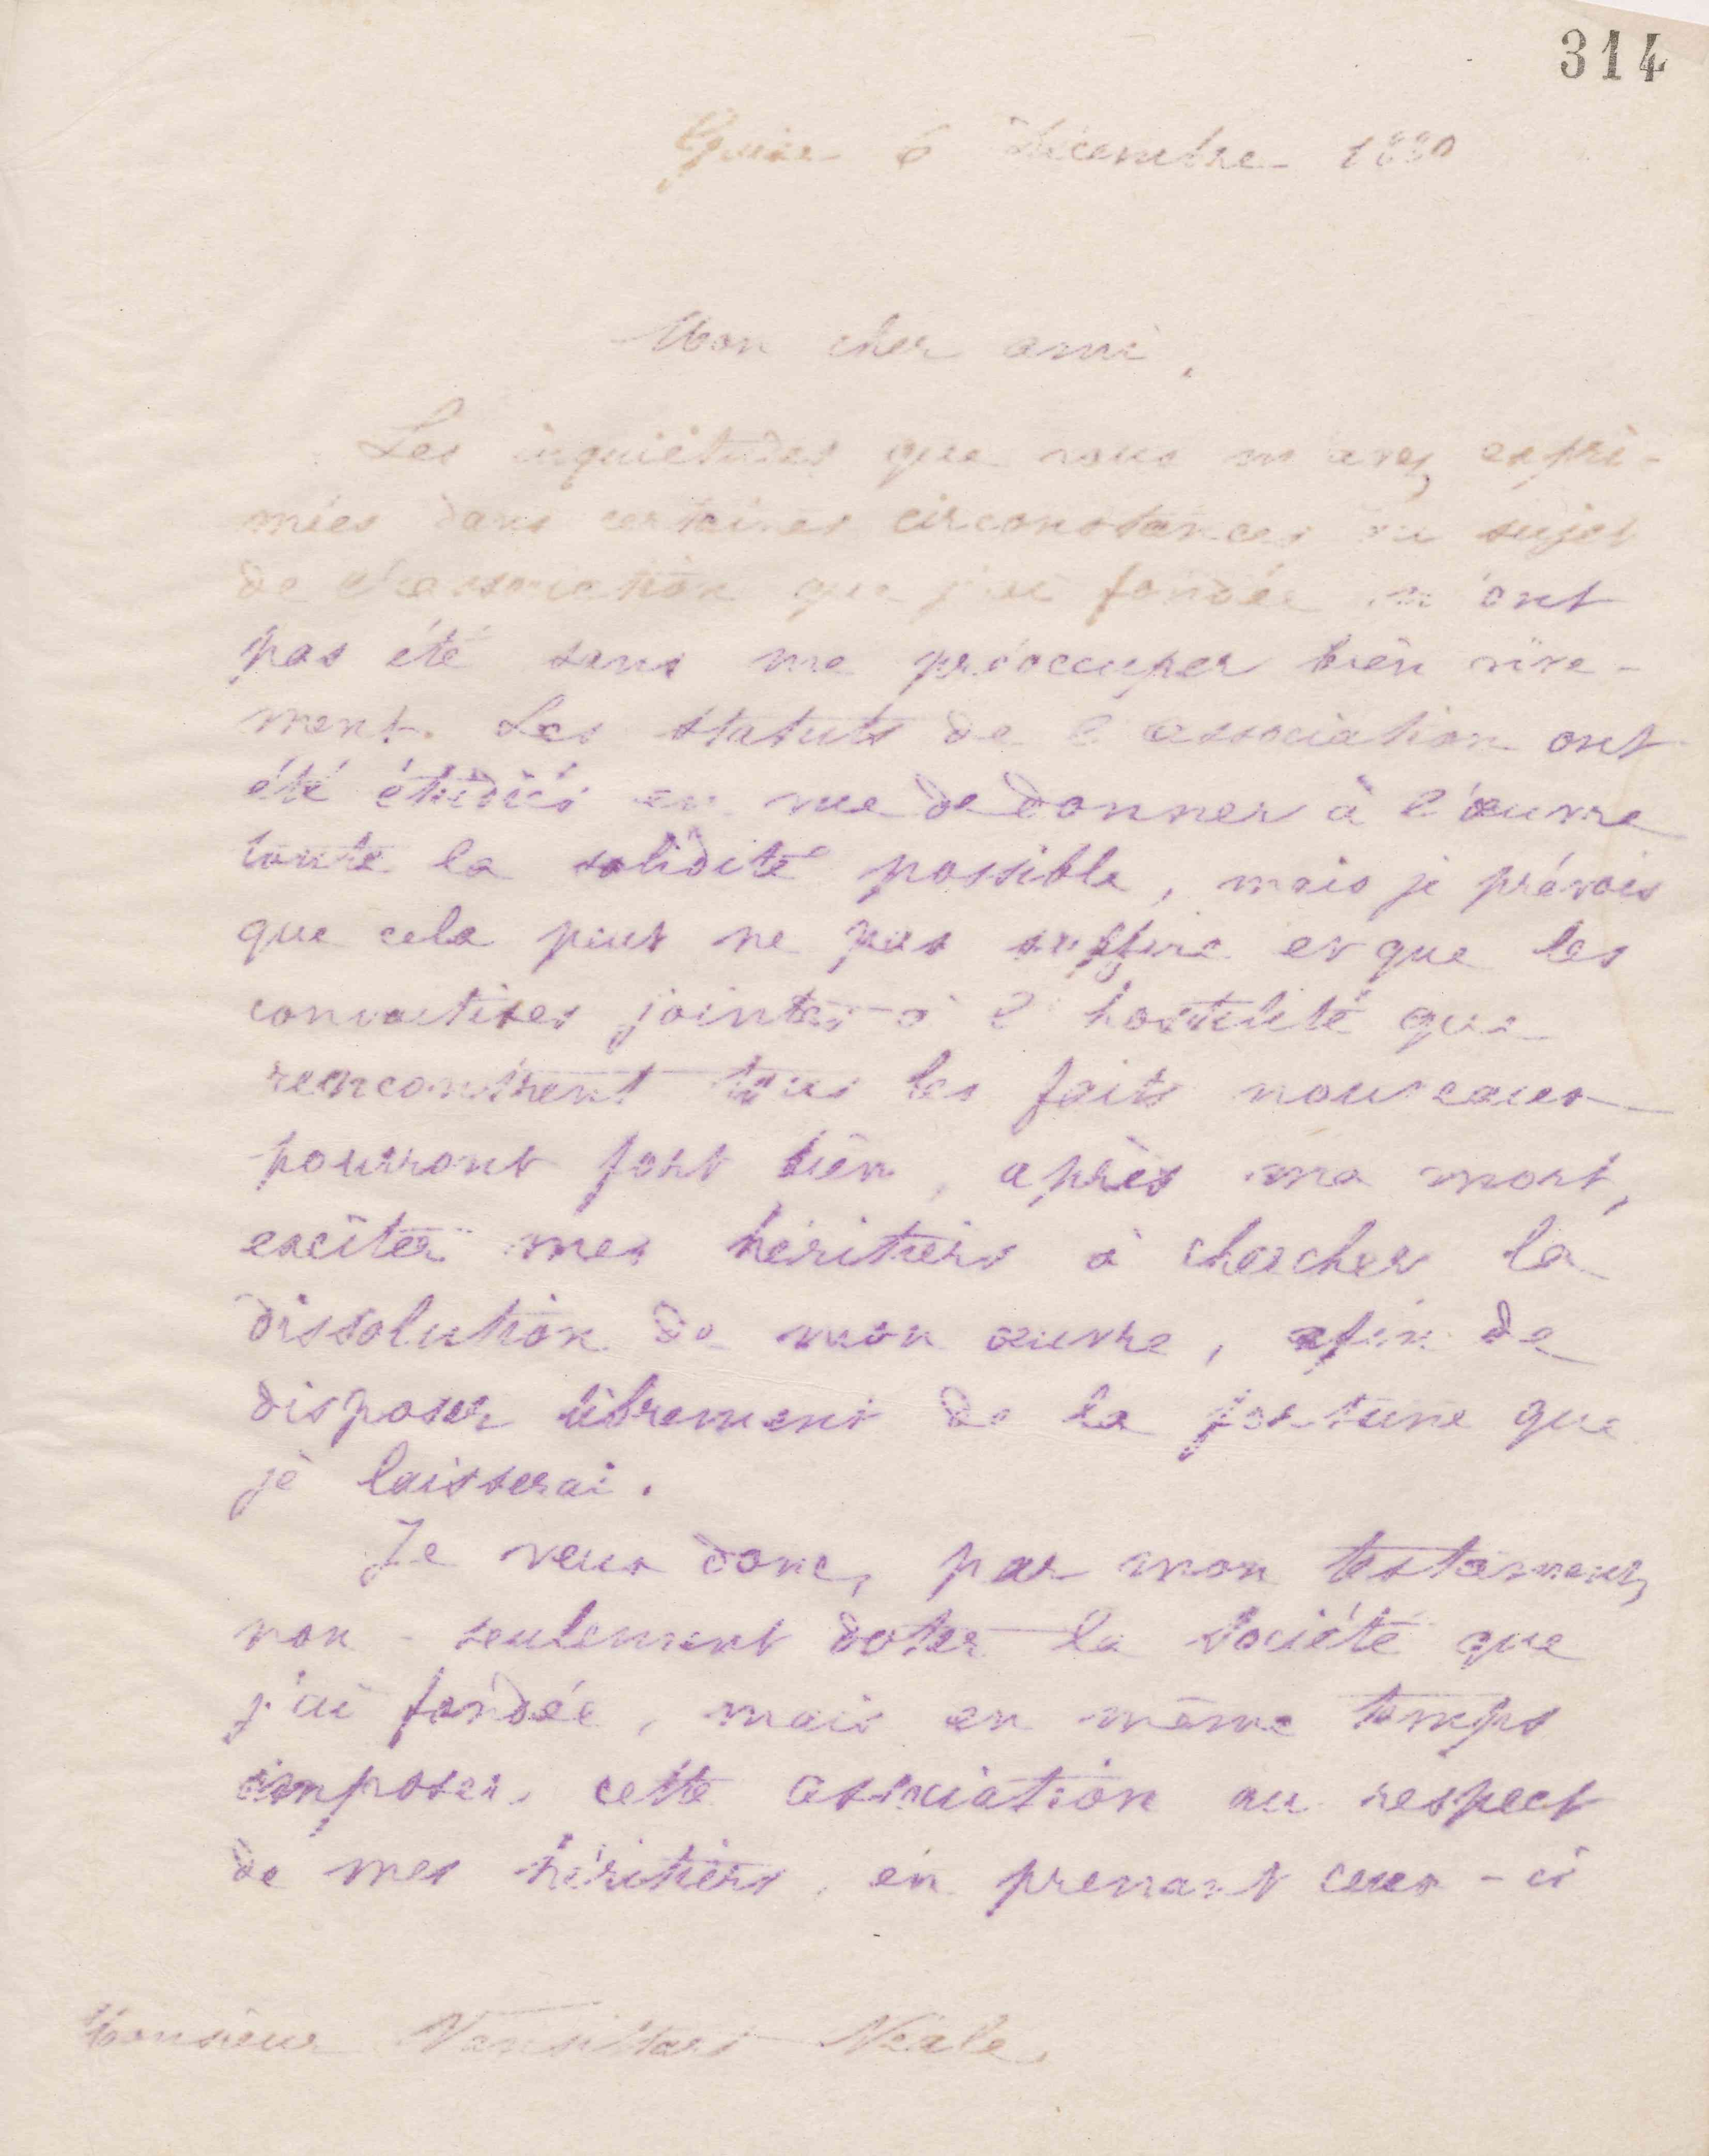 314
Guise 6 Décembre 1880
Mon cher ami,
Les inquiétudes que vous m'avez expri-
mées dans certaines circonstances au sujet
de l'association que j'ai fondée n'ont
pas été sans me préoccuper bien vive-
ment. Les statuts de l'association ont
été étudiés en vue de donner à l'œuvre
toute la solidité possible, mais je prévois
que cela peut ne pas suffire et que les
convoitises jointes à l'hostilité que
rencontrent tous les faits nouveaux
pourront fort bien, après ma mort,
exciter mes héritiers à chercher la
dissolution de mon œuvre, afin de
disposer librement de la fortune que
je laisserai.
Je veux donc, par mon testament,
non-seulement doter la société que
j'ai fondée, mais en même temps
imposer cette association au respect
de mes héritiers, en prenant ceux-ci
Monsieur Vansittart Neale